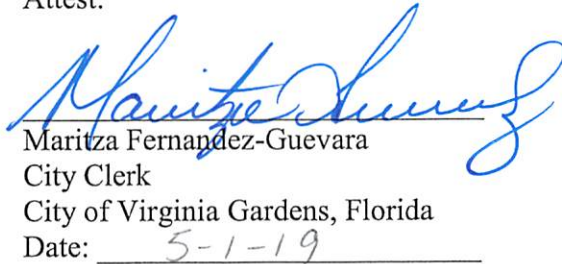 Attest:
Maritza
Maritza Fernandez-Guevara
City Clerk
City of Virginia Gardens, Florida
Date: 5-1-19